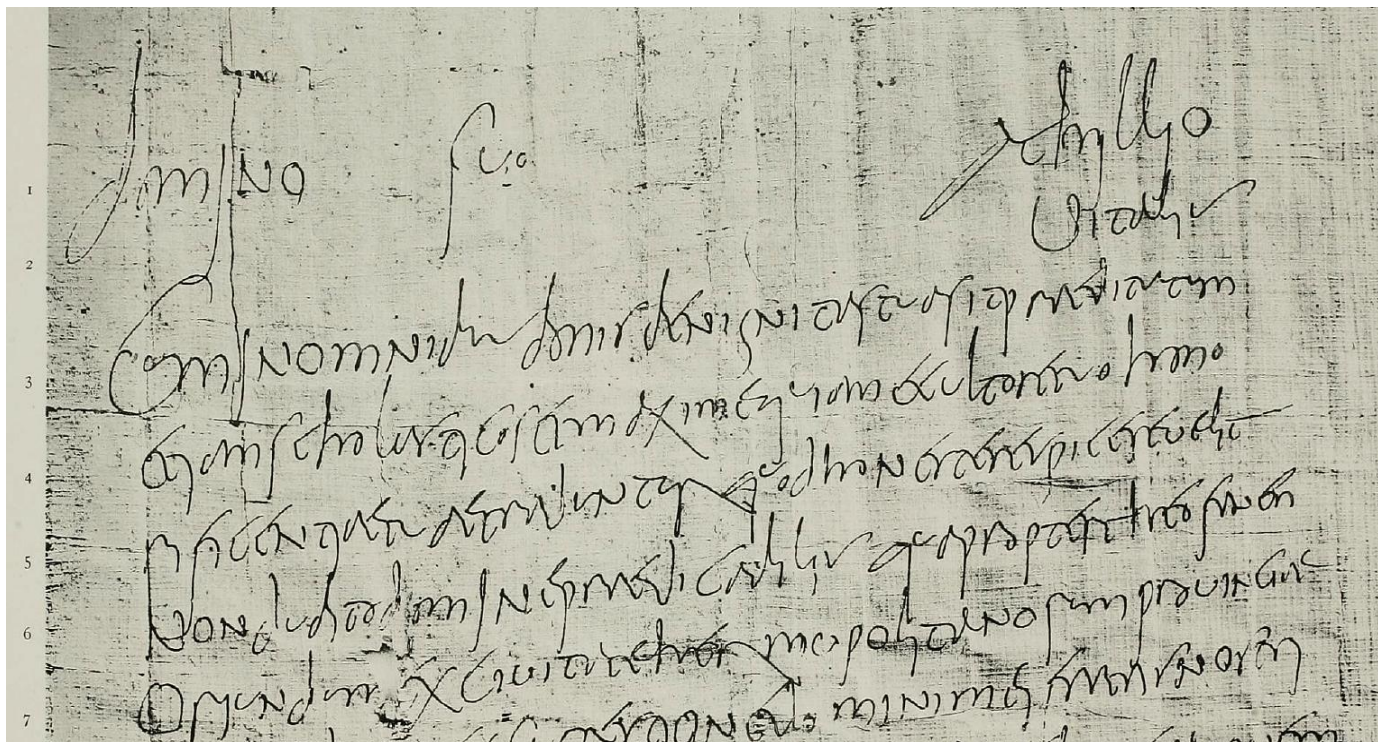 1 Domino suo Achillio
2 Vitalis
Cum in omnibus bonis benignitas tua sit praedita tum
3 etiam scholasticos et maxime qui a me cultore tuo hono
4 rificentiae tuae traduntur quod honeste respicere velit
5 non dubito domine praedicabilis quapropter Theofanen
6 oriundum ex civitate Hermupolitanorum provinciae
7 suggestione domini mei fratris nostri